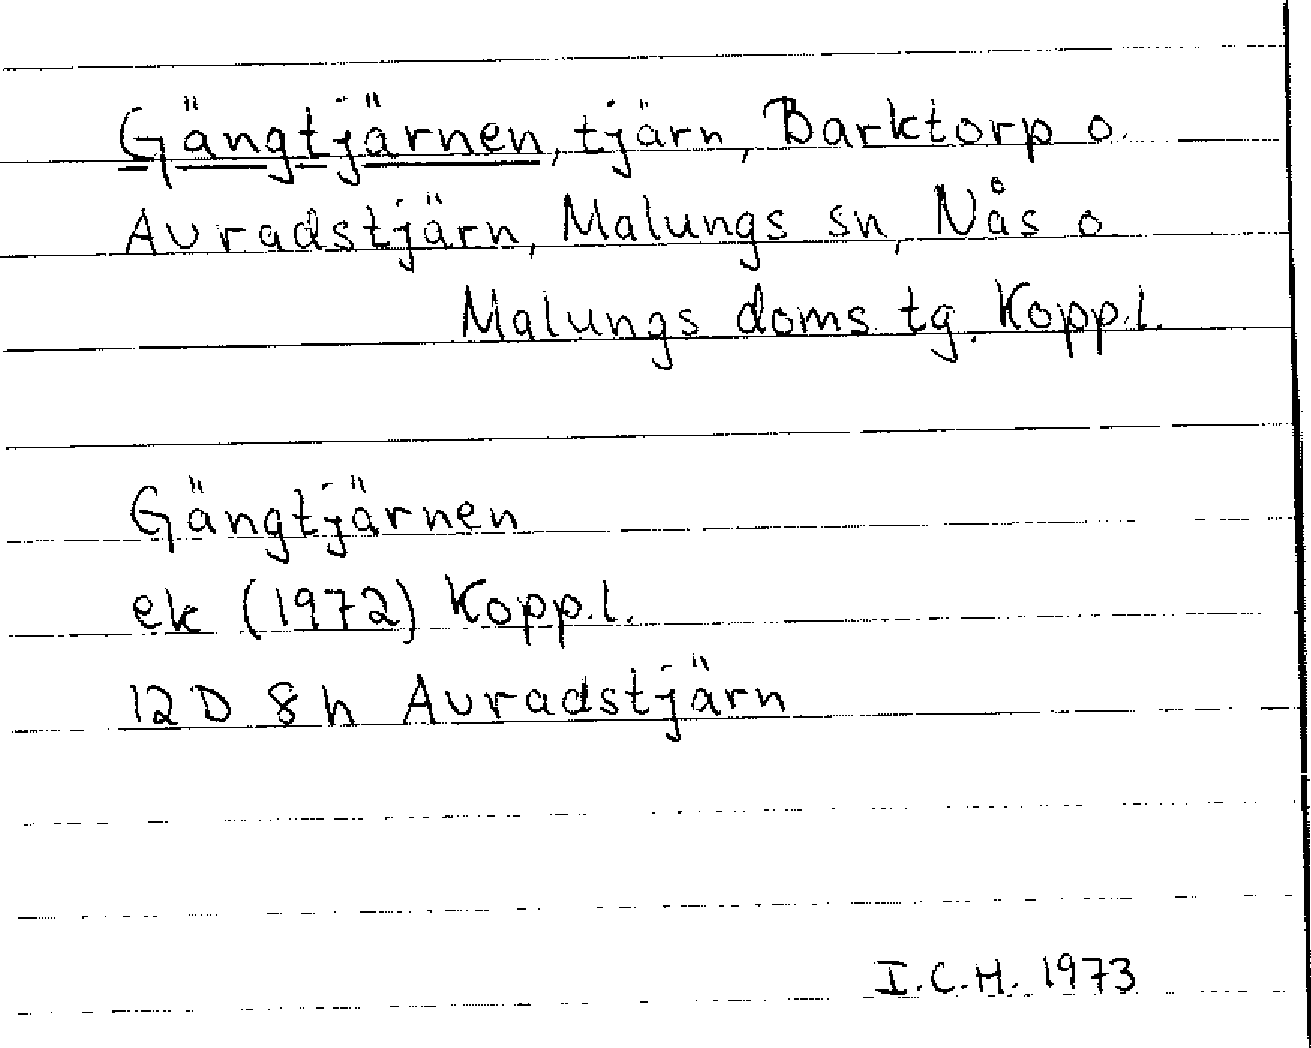 Gängtjärnen, tjärn, Barktorp o.
Avradstjärn, Malungs sn, Nås o
Malungs doms. tg. Kopp.l.
Gängtjärnen
ek (1972) Kopp.l.
12D 8h Avradstjärn
I.C.H. 1973